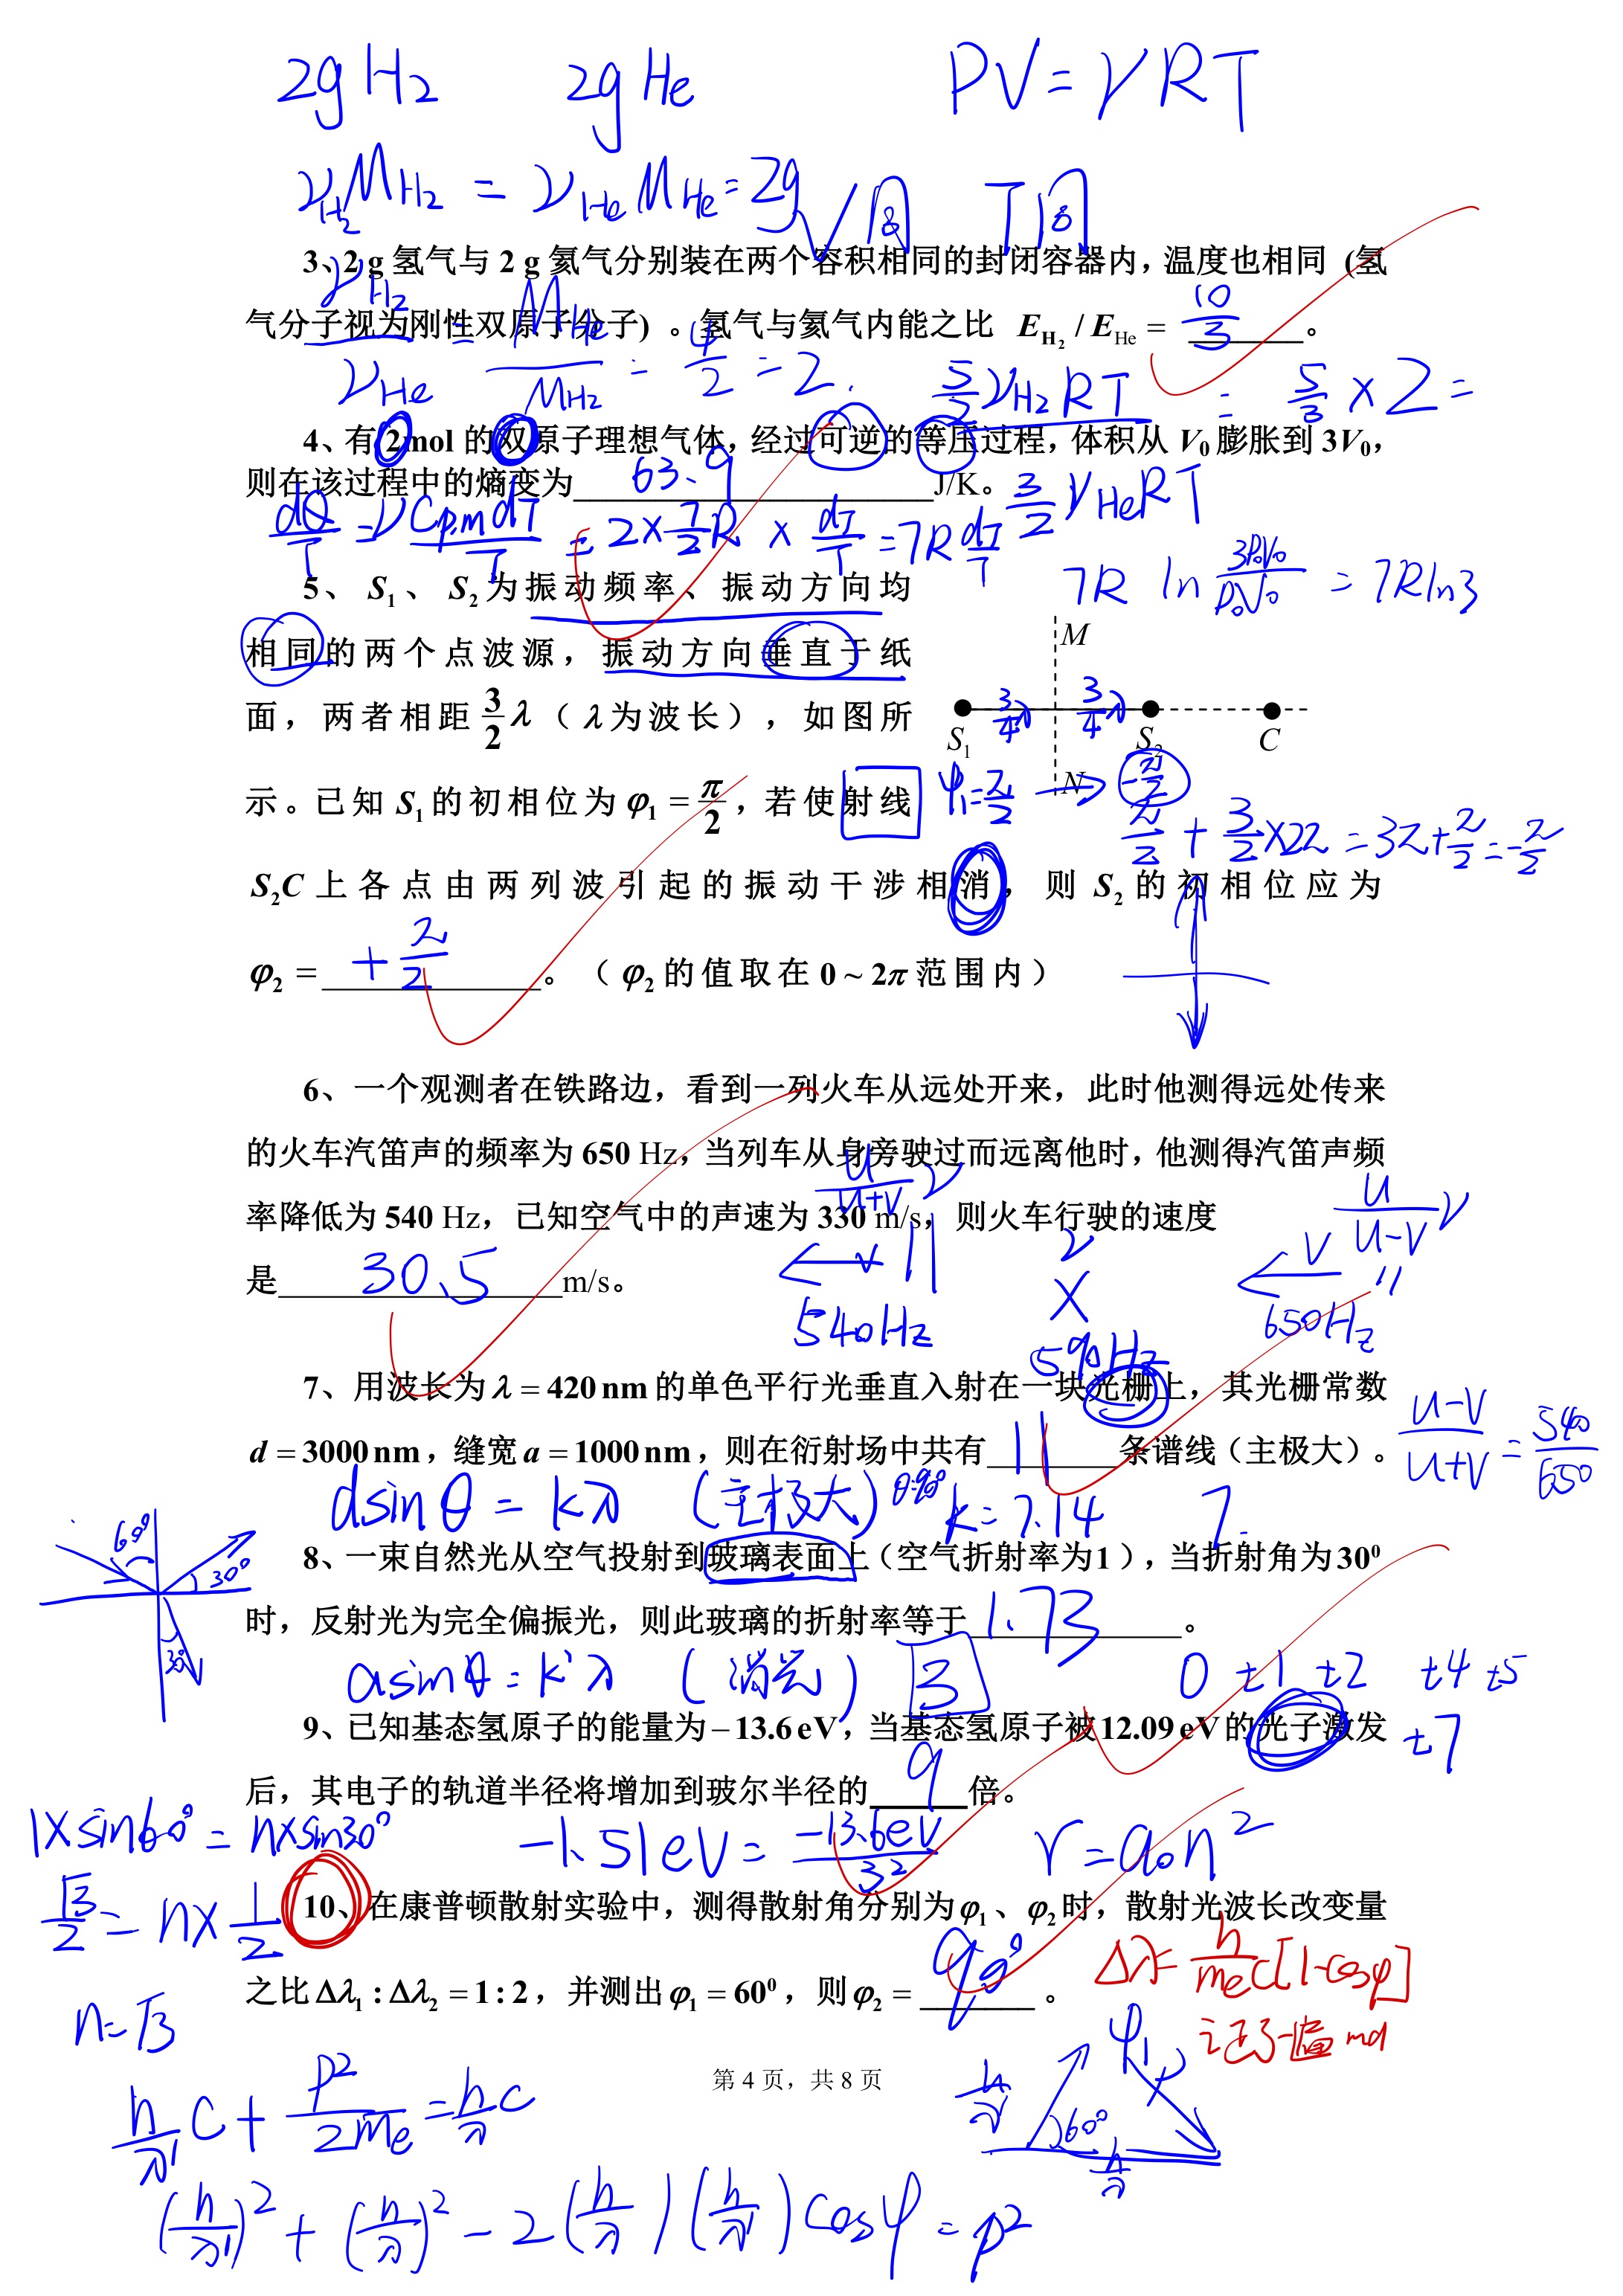 2g H₂ 2g He PV=νRT
ν_H₂ M_H₂ = ν_He M_He = 2g V同 T同
3、2 g 氢气与 2 g 氦气分别装在两个容积相同的封闭容器内，温度也相同 (氢
气分子视为刚性双原子分子) 。氢气与氦气内能之比 E_H₂ / E_He = 10/3 。
ν_H₂/ν_He = M_He/M_H₂ = 4/2 = 2. 5/2 ν_H₂ RT = 5/3 × 2 =
4、有 2mol 的双原子理想气体，经过可逆的等压过程，体积从 V₀ 膨胀到 3V₀，
则在该过程中的熵变为 63.9 J/K。 3/2 ν_He RT
dQ/T = ν C_p,m dT/T = 2×7/2 R × dT/T = 7R dT/T
7R ln 3P₀V₀/P₀V₀ = 7R ln3
5、 S₁、 S₂ 为振动频率、振动方向均
相同的两个点波源，振动方向垂直于纸
面，两者相距 3/2 λ（λ 为波长），如图所
M
3/4 λ 3/4 λ
S₁ S₂ C
N
示。已知 S₁ 的初相位为 φ₁ = π/2，若使射线
φ₁ = π/2 → -π/2
π/2 + 3/2×2π = 3π + π/2 = -π/2
S₂C 上各点由两列波引起的振动干涉相消，则 S₂ 的初相位应为
φ₂ = +π/2 。（φ₂ 的值取在 0 ~ 2π 范围内）
6、一个观测者在铁路边，看到一列火车从远处开来，此时他测得远处传来
的火车汽笛声的频率为 650 Hz，当列车从身旁驶过而远离他时，他测得汽笛声频
u/(u+v) ν u/(u-v) ν
率降低为 540 Hz，已知空气中的声速为 330 m/s，则火车行驶的速度
是 30.5 m/s。
← v ν ← v
540Hz × 650Hz
590Hz
7、用波长为 λ = 420 nm 的单色平行光垂直入射在一块光栅上，其光栅常数
d = 3000 nm，缝宽 a = 1000 nm，则在衍射场中共有 11 条谱线（主极大）。
(u-v)/(u+v) = 540/650
dsinθ = kλ (主极大) θ=90° k=7.14 7.
60° 30° 30°
8、一束自然光从空气投射到玻璃表面上（空气折射率为1），当折射角为30⁰
时，反射光为完全偏振光，则此玻璃的折射率等于 1.73 。
asinθ = k'λ (消光) 3 0 ±1 ±2 ±4 ±5
±7
9、已知基态氢原子的能量为 – 13.6 eV，当基态氢原子被 12.09 eV 的光子激发
后，其电子的轨道半径将增加到玻尔半径的 9 倍。
1×sin60° = n×sin30° -1.51eV = -13.6eV/3² r = a₀n²
√3/2 = n×1/2
10、在康普顿散射实验中，测得散射角分别为 φ₁、φ₂ 时，散射光波长改变量
之比 Δλ₁ : Δλ₂ = 1 : 2，并测出 φ₁ = 60⁰，则 φ₂ = 90° 。
Δλ = h/(mₑc) [1-cosφ]
n=√3
第 4 页，共 8 页
h/λ' φ₁ P
60°
h/λ
h/λ' c + p²/2mₑ = h/λ c
(h/λ')² + (h/λ)² - 2(h/λ)(h/λ')cosφ = p²